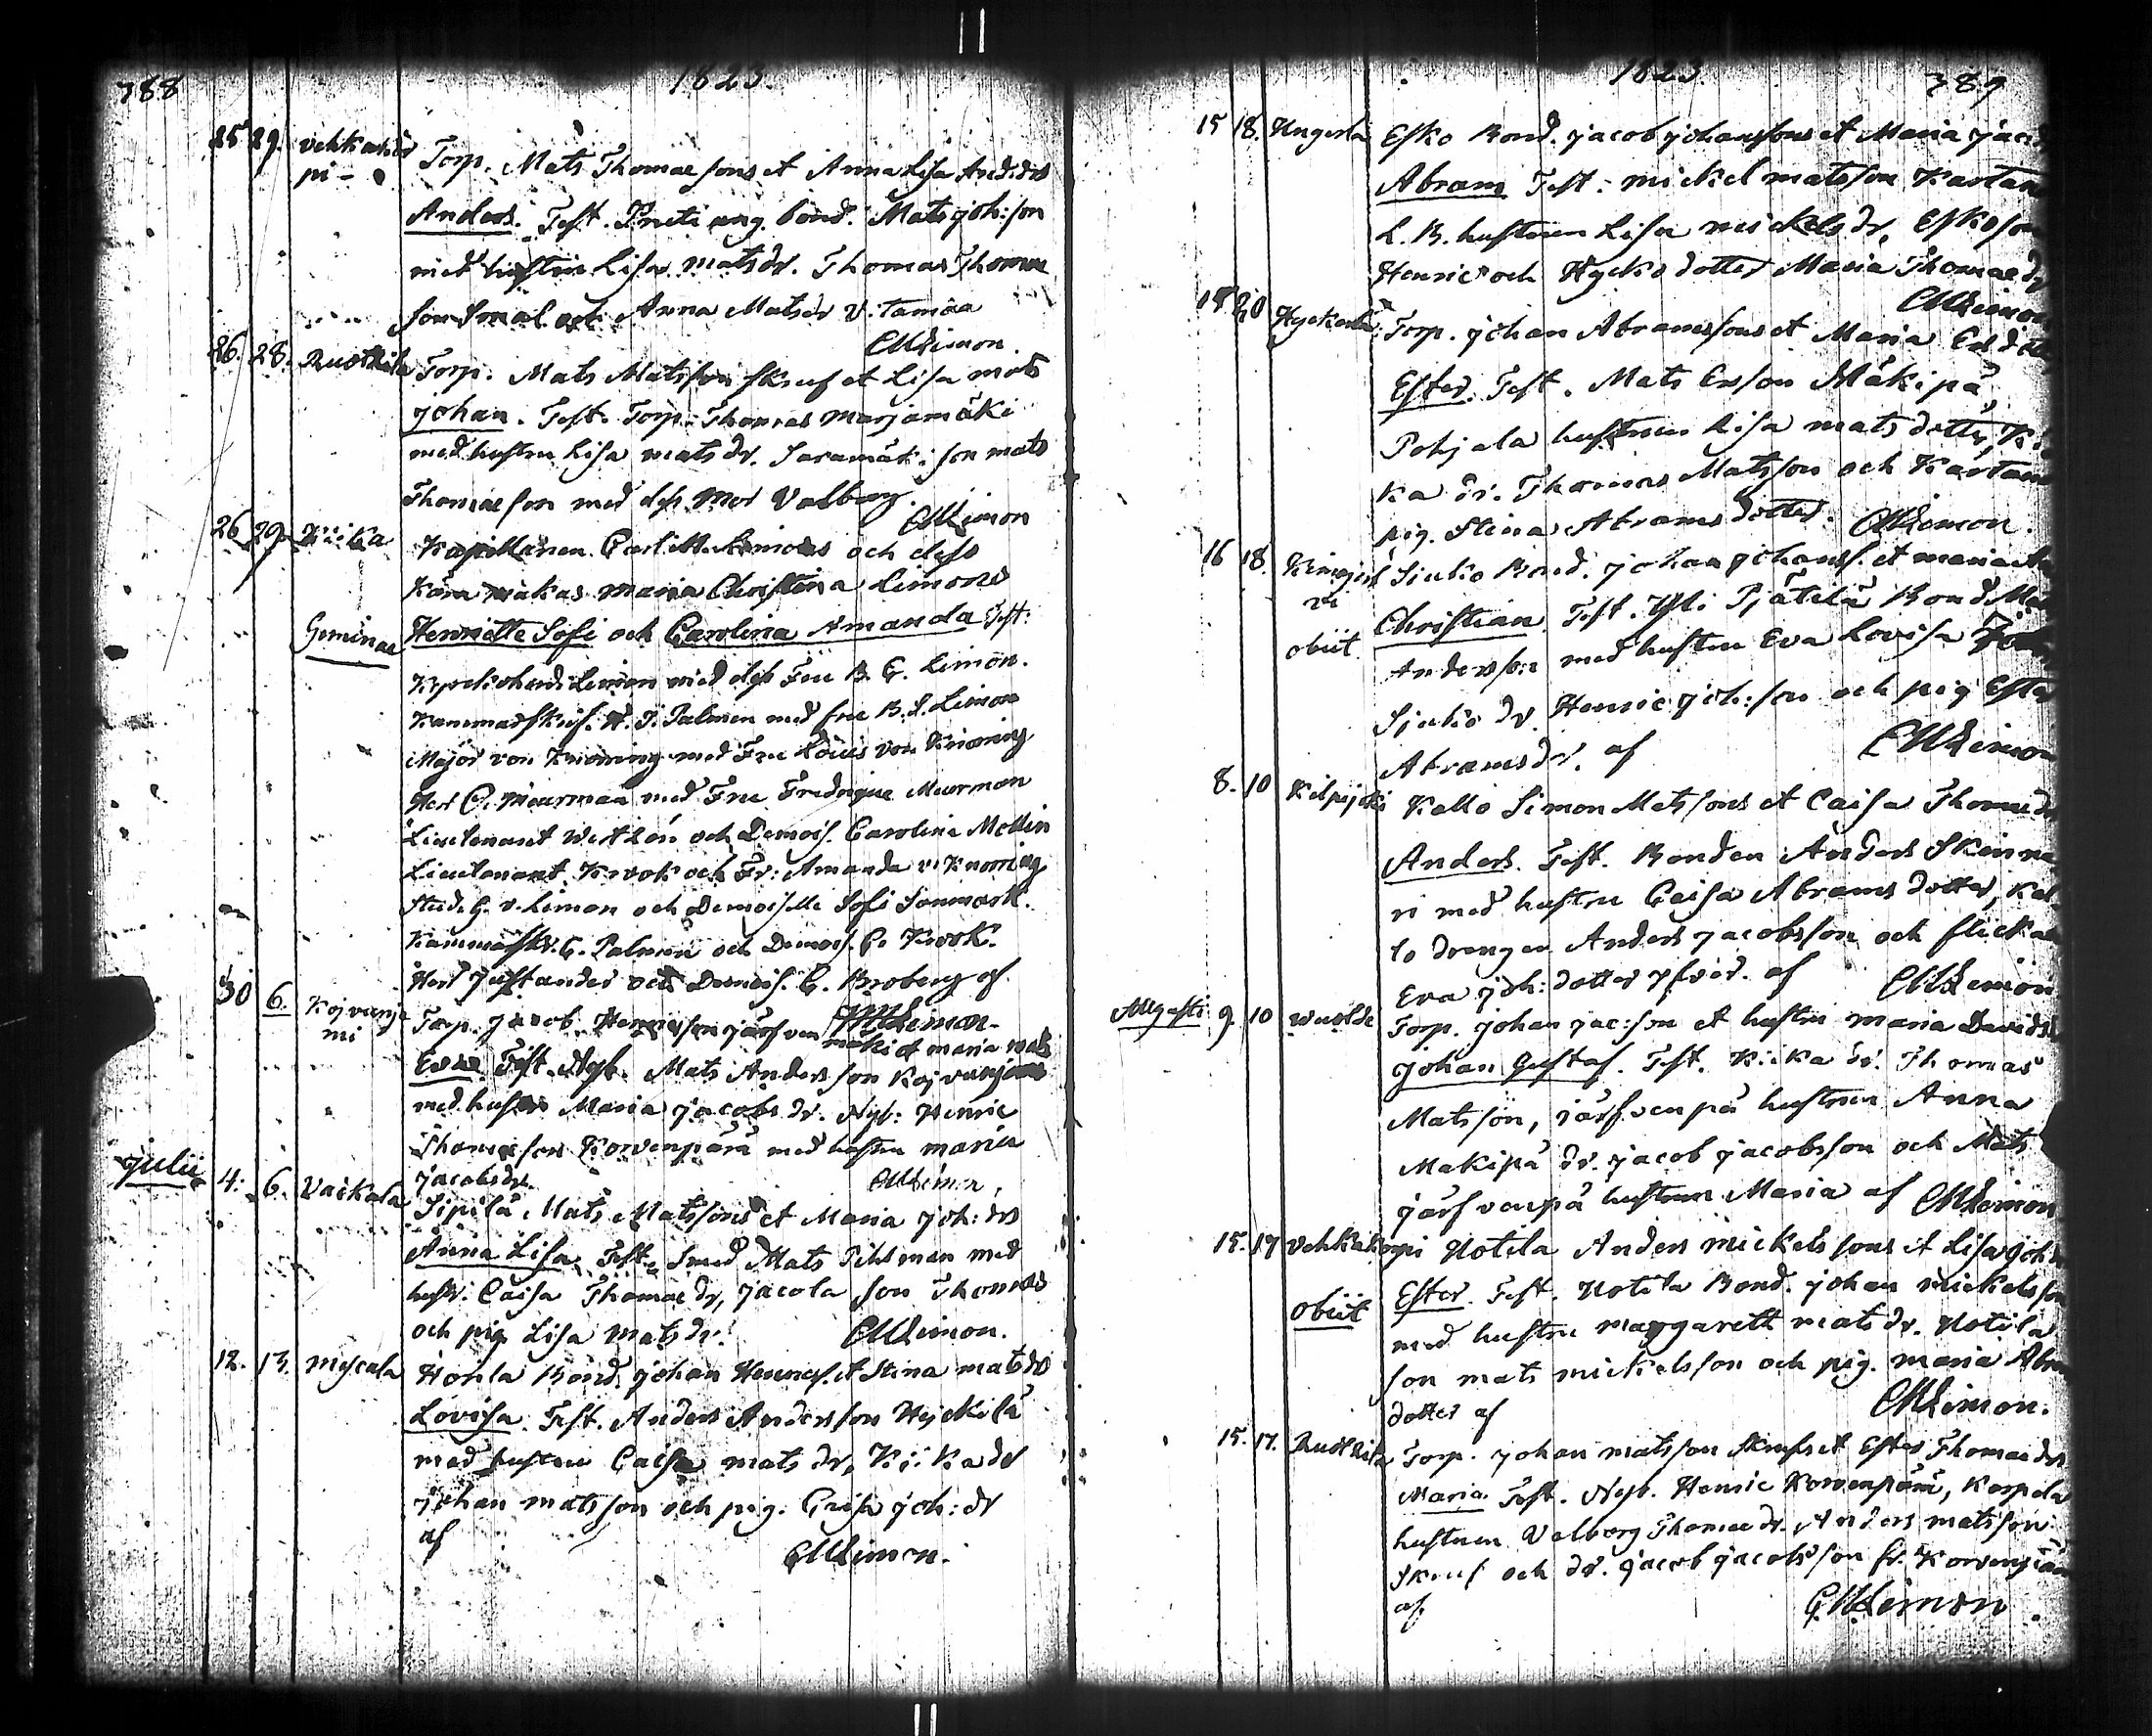 388
1823.
25 29. vehkakor Torp. Mats Thomae sons et Anna Lisa And:drs
pi -
Anders. Test. Preti ang. bond. Mats joh:son
med hustru Lisa matsdr. Thomas Thomae
son Smal och Anna Matsdr V:tamaa
CMLimon.
26. 28. Ruotkila Torp. Mats Matsson skruf et Lisa mats
johan. Test. Torp. Thomas marjamäki
med hustru Lisa matsdr. Saramäki son mats
Thomaeson med dess mor Valborg.
CMLimon
26 29. Kiika Kapellanen Carl M. Limons och dess
kära makas maria Christina Limons
Geminae Henriette Sofi och Carolina Amanda Test:
Kyrckoherd Limon med dess Fru B. E. Limon.
Kammarskrif. H. J. Palmen med fru B. S. Limon
Major von Knorring med Fru Lovis von Knorring
Herr C. Meurman med Fru Fredrique Meurman
Lieutenant Wetlén och Demois. Carolina Mellin
Lieutenant Krook och Fr: Amanda v. Knorring
Stud. G. v. Limon och Demoiselle Sofi Sonmark.
Kammarskr. G. Palmen och Demois. C. Krook.
Herr Justander och Demois. C. Broberg af
CMLimon.
30 6. Kojvunje Torp. Jacob Henricson järfven
mi mäki et maria mats
Evae Test. Nyb. Mats Andersson Kojvunjemi
med hustru Maria jacobs dr. Nyb: Henric
Thomaeson Korvenpärä med hustru maria
jacobsdr. CMLimon.
Julii 4. 6. Vaikala Sipilä Mats Matssons et Maria joh:drs
Anna Lisa. Test. Smed Mats Pihlman med
hustr. Caisa Thomae dr, jacola son Thomas
och pig. Lisa matsdr. CMLimon.
12. 13. mejcala Honla Bond. johan Henrics. et Stina matsdrs
Lovisa. Test. Anders Andersson Hejckilä
med hustru Caisa mats dr, Kiika dr
johan matsson och pig. Caisa joh:dr
af
CMLimon.
1823. 389
15 18. Ungerla Esko Bond. jacob johanssons et Maria jac:
Abram Test: mickel matsson Kartan
L. B. hustrun Lisa mickelsdr. Esko son
Henric och Hycko dotter Maria Thomaedr
CMLimon
18 20 Hyckerla Torp. johan Abramssons et Maria Er:dott
Ester. Test. Mats Erson Mäkipä,
Pohjala hustrun Lisa mats dotter, Kii
ka dr. Thomas Matsson och Kartan
pig. Stina Abrams dotter. CMLimon.
16 18. Sjuko Bond. johan johanss. et maria
vi
obiit Christian. Test. Yli Pjätilä Bond. Mats
Anderson med hustru Eva Lovisa
Sjuko dr. Henric joh:son och pig Ester
Abramsdr. af CMLimon
8. 10 Kilpijoki Kallo Simon Matssons et Caisa Thomaedr
Anders. Test. Bonden Anders Skinna
ri med hustru Caisa Abrams dotter, Kal
lo drengen Anders jacobsson och flickan
Eva joh:dotter af CMLimon
Augusti 9. 10 wuolde Torp. johan jac:son et hustru maria Davids
johan Gustaf. Test. Kiika dr. Thomas
Matsson, järfvenpä hustrun Anna
Makipä dr. jacob jacobsson och Mats
järfvenpä hustrun Maria af CMLimon
15. 17 vehkakorpi Uotila Anders mickelssons et Lisa joh:
obiit Ester. Test. Uotila Bond. johan mickelsson
med hustru margarett matsdr. Uotila
son mats mickelsson och pig. maria Abra
dotter af
CMLimon.
15. 17. Ruotkila Torp. johan matsson skrufs et Ester Thomae drs
Maria. Test. Nyb. Henric Korvenpärä, Korpela
hustrun Valborg Thomae dr. Anders matsson
skruf och dr. jacob jacobsson fr. Korvenpää
af CMLimon.